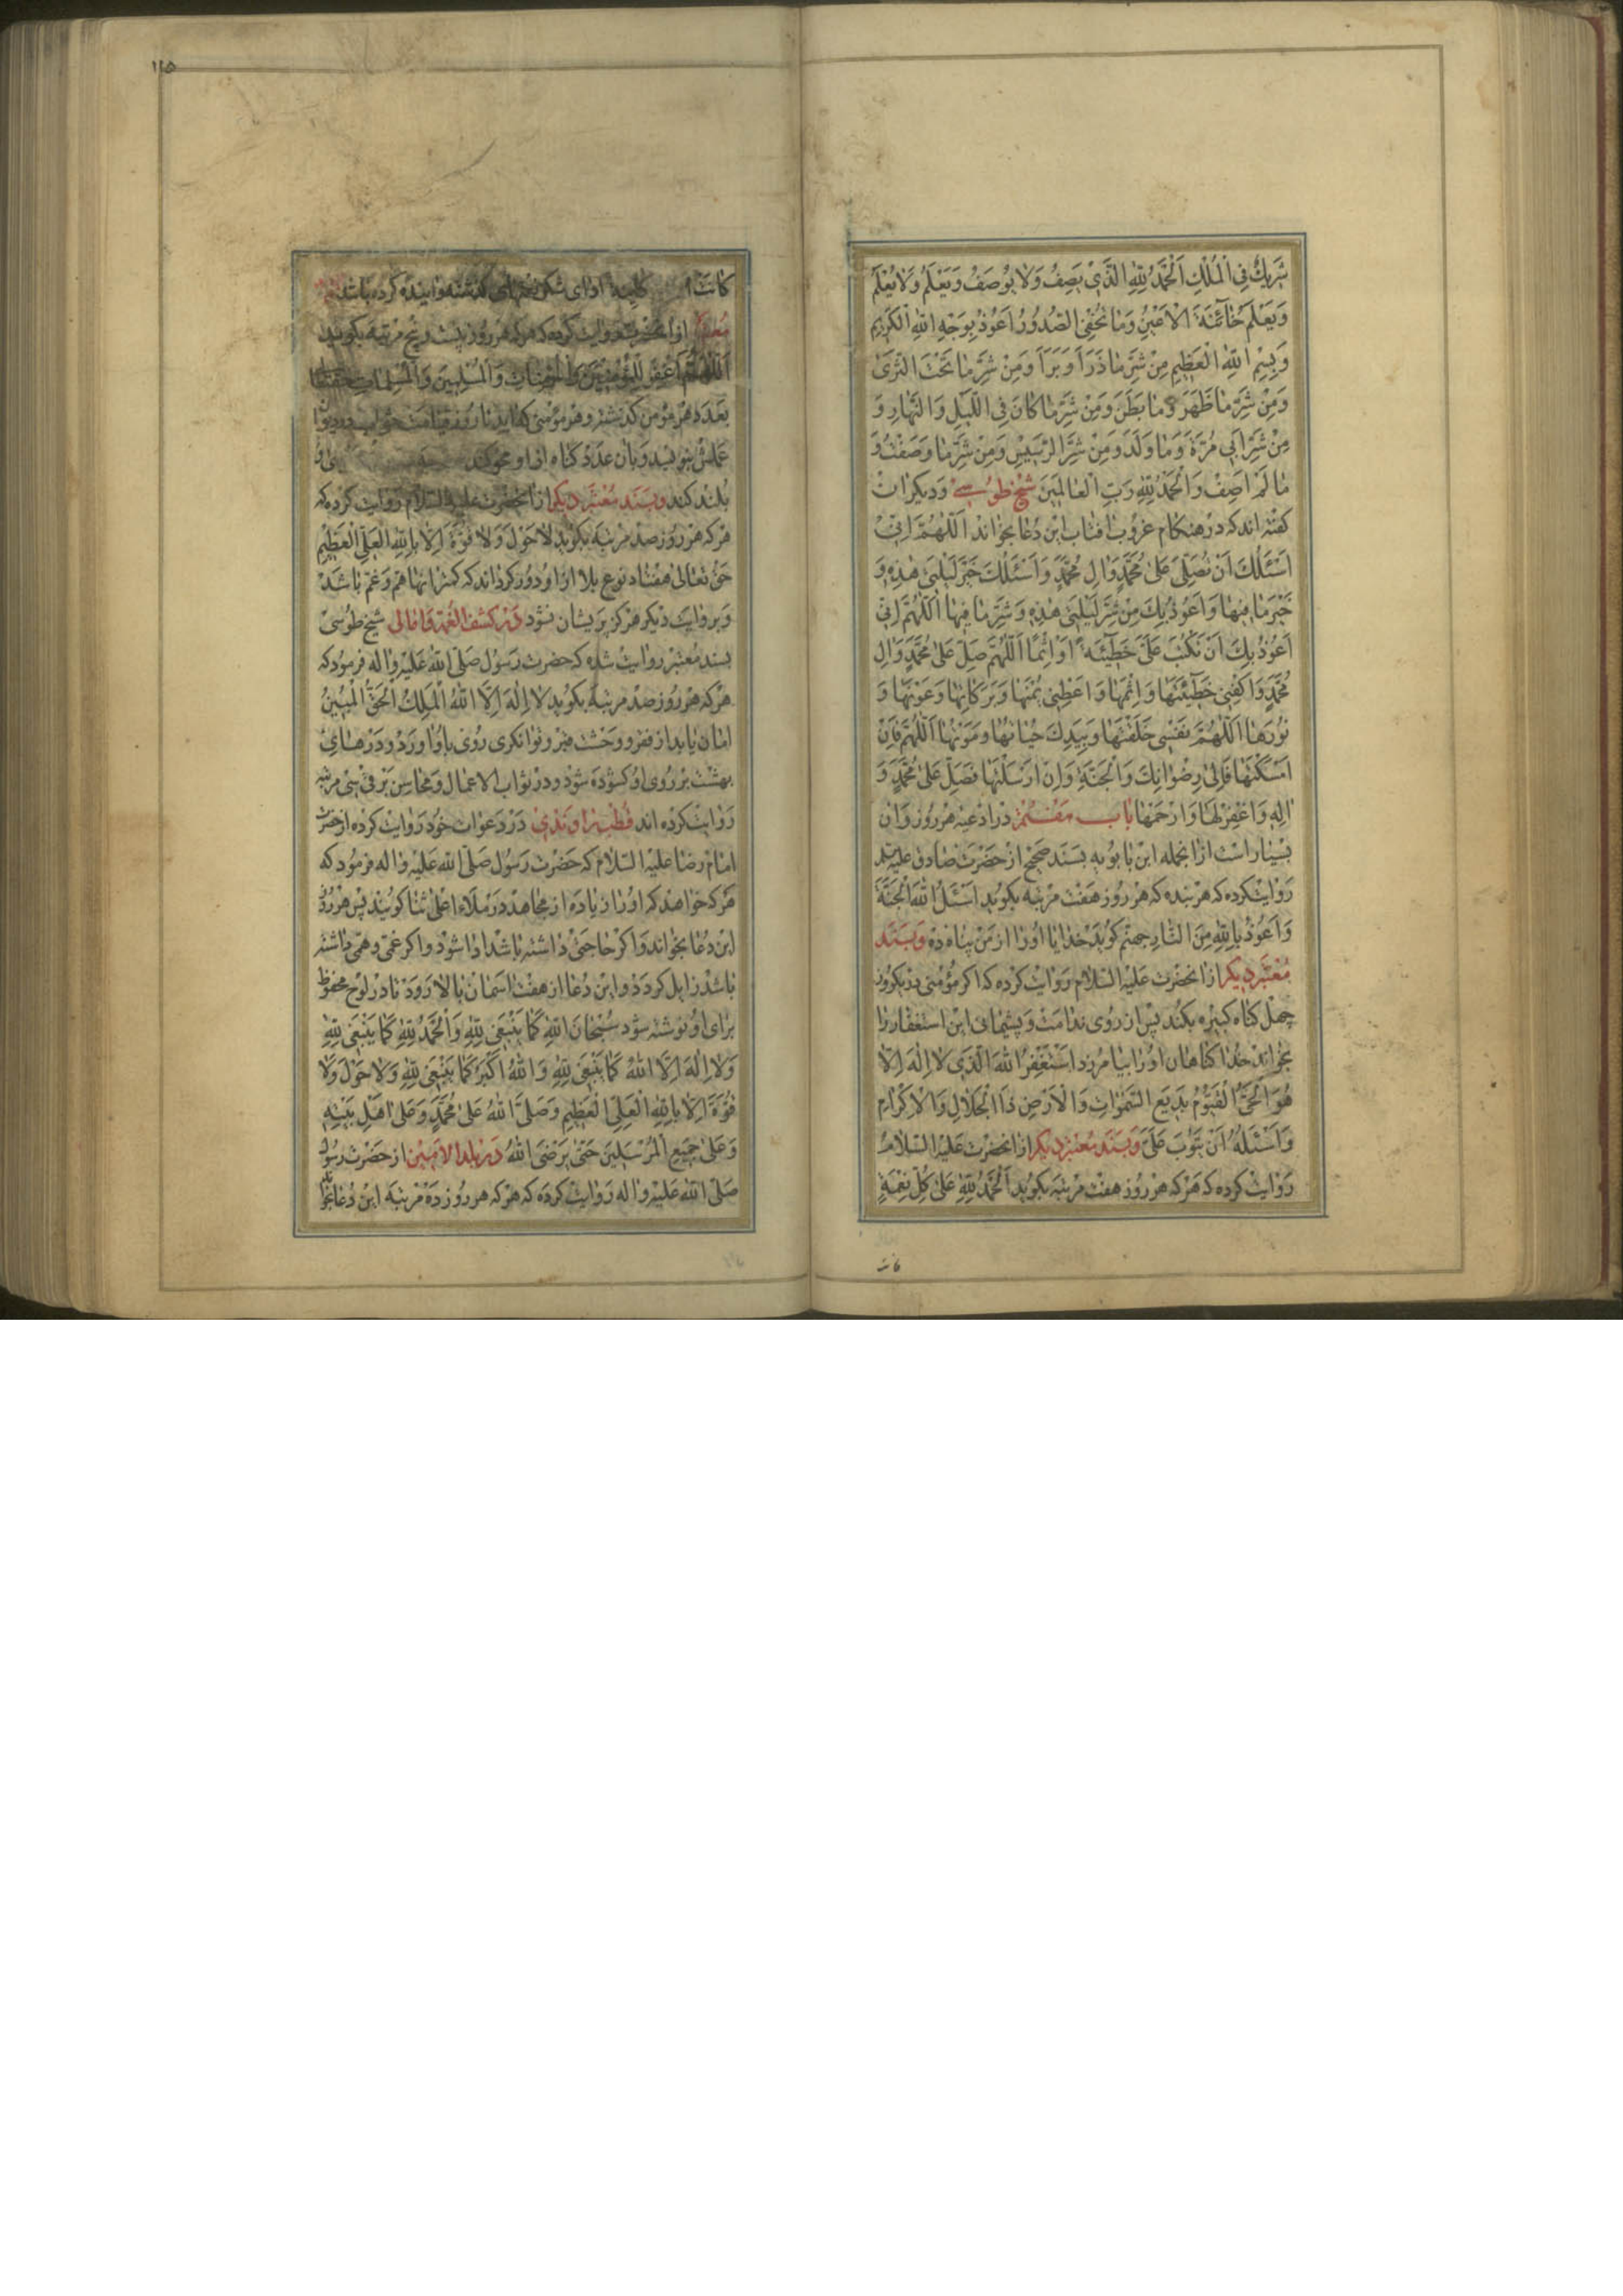 شَرِيكٌ فِي الْمُلْكِ اَلْحَمْدُ لِلّٰهِ الَّذِي يَصِفُ وَلَا يُوصَفُ وَيَعْلَمُ وَلَا يُعْلَمُ
وَيَعْلَمُ خَائِنَةَ الْاَعْيُنِ وَمَا تُخْفِي الصُّدُورُ اَعُوذُ بِوَجْهِ اللهِ الْكَرِيمِ
وَبِسْمِ اللهِ الْعَظِيمِ مِنْ شَرِّ مَا ذَرَاَ وَبَرَاَ وَمِنْ شَرِّ مَا تَحْتَ الثَّرَى
وَمِنْ شَرِّ مَا ظَهَرَ وَمَا بَطَنَ وَمِنْ شَرِّ مَا كَانَ فِي اللَّيْلِ وَالنَّهَارِ وَ
مِنْ شَرِّ اَبِي مُرَّةَ وَمَا وَلَدَ وَمِنْ شَرِّ الرَّسِيسِ وَمِنْ شَرِّ مَا وَصَفْتُ وَ
مَا لَمْ اَصِفْ وَالْحَمْدُ لِلّٰهِ رَبِّ الْعَالَمِينَ شیخ طوسے وَدیکران
کفته اند که در هنکام غروب افتاب این دعا بخواند اَللّٰهُمَّ اِنِّي
اَسْئَلُكَ اَنْ تُصَلِّيَ عَلٰى مُحَمَّدٍ وَالِ مُحَمَّدٍ وَاَسْئَلُكَ خَيْرَ لَيْلَتِي هٰذِهِ وَ
خَيْرَ مَا فِيهَا وَاَعُوذُ بِكَ مِنْ شَرِّ لَيْلَتِي هٰذِهِ وَشَرِّ مَا فِيهَا اَللّٰهُمَّ اِنِّي
اَعُوذُ بِكَ اَنْ تَكْتُبَ عَلَيَّ خَطِيئَةً اَوْ اِثْمًا اَللّٰهُمَّ صَلِّ عَلٰى مُحَمَّدٍ وَالِ
مُحَمَّدٍ وَاكْفِنِي خَطِيئَتَهَا وَاِثْمَهَا وَاَعْطِنِي يُمْنَهَا وَبَرَكَاتِهَا وَعَوْنَهَا وَ
نُورَهَا اَللّٰهُمَّ نَفْسِي خَلَقْتَهَا وَبِيَدِكَ حَيَاتُهَا وَمَوْتُهَا اَللّٰهُمَّ فَاِنْ
اَمْسَكْتَهَا فَاِلٰى رِضْوَانِكَ وَالْجَنَّةِ وَاِنْ اَرْسَلْتَهَا فَصَلِّ عَلٰى مُحَمَّدٍ وَ
اٰلِهِ وَاغْفِرْ لَهَا وَارْحَمْهَا باب هفتم در ادعیه هر روز وان
بسیار است ازانجمله ابن بابویه بسند صحیح از حضرت صادق علیه السلام
روایت کرده که هر بنده که هر روز هفت مرتبه بکوید اَسْئَلُ اللهَ الْجَنَّةَ
وَاَعُوذُ بِاللهِ مِنَ النَّارِ جهنم کوید خدایا او را از من پناه ده وبسند
معتبر دیکر از انحضرت علیه السلام روایت کرده که اکر مؤمنی در یکروز
چهل کناه کبیره بکند پس از روی ندامت و پشیمانی این استغفار را
بخواند خدا کناهان او را بیامرزد اَسْتَغْفِرُ اللهَ الَّذِي لَا اِلٰهَ اِلَّا
هُوَ الْحَيُّ الْقَيُّومُ بَدِيعُ السَّمٰوَاتِ وَالْاَرْضِ ذَا الْجَلَالِ وَالْاِكْرَامِ
وَاَسْئَلُهُ اَنْ يَتُوبَ عَلَيَّ وبسند معتبر دیکر از انحضرت علیه السلام
روایت کرده که هر که هر روز هفت مرتبه بکوید اَلْحَمْدُ لِلّٰهِ عَلٰى كُلِّ نِعْمَةٍ
کانت
۱۱۵
کانت ادای شکر نعمتهای کذشته واینده کرده باشد
معتبر از انحضرت روایت کرده که هر که هر روز بیست و پنج مرتبه بکوید
اَللّٰهُمَّ اغْفِرْ لِلْمُؤْمِنِينَ وَالْمُؤْمِنَاتِ وَالْمُسْلِمِينَ وَالْمُسْلِمَاتِ حقتعالی
بعدد هر مؤمن کذشته و هر مؤمنی که اید تا روز قیامت در دیوان
عملش بنویسد و بان عدد کناه از او محو کند
بلند کند وبسند معتبر دیکر از انحضرت علیه السلام روایت کرده که
هر که هر روز صد مرتبه بکوید لَا حَوْلَ وَلَا قُوَّةَ اِلَّا بِاللهِ الْعَلِيِّ الْعَظِيمِ
حق تعالی هفتاد نوع بلا از او دور کرداند که کمتر انها هم و غم باشد
وبروایت دیکر هرکز پریشان نشود در کشف الغمه وامالی شیخ طوسی
بسند معتبر روایت شده که حضرت رسول صلی الله علیه واله فرمود که
هر که هر روز صد مرتبه بکوید لَا اِلٰهَ اِلَّا اللهُ الْمَلِكُ الْحَقُّ الْمُبِينُ
امان یابد از فقر و وحشت قبر و توانکری روی باو اورد و درهای
بهشت بر روی او کشوده شود و در ثواب الاعمال و محاسن برقی سی مرتبه
روایت کرده اند قطب راوندی در دعوات خود روایت کرده از حضرت
امام رضا علیه السلام که حضرت رسول صلی الله علیه واله فرمود که
هر که خواهد که او را زیاده از مجاهد در ملاء اعلی ثنا کویند پس هر روز
این دعا بخواند و اکر حاجتی داشته باشد ادا شود و اکر غمی و همی داشته
باشد زایل کردد و این دعا از هفت اسمان بالا رود تا در لوح محفوظ
برای او نوشته شود سُبْحَانَ اللهِ كَمَا يَنْبَغِي لِلّٰهِ وَالْحَمْدُ لِلّٰهِ كَمَا يَنْبَغِي لِلّٰهِ
وَلَا اِلٰهَ اِلَّا اللهُ كَمَا يَنْبَغِي لِلّٰهِ وَاللهُ اَكْبَرُ كَمَا يَنْبَغِي لِلّٰهِ وَلَا حَوْلَ وَلَا
قُوَّةَ اِلَّا بِاللهِ الْعَلِيِّ الْعَظِيمِ وَصَلَّى اللهُ عَلٰى مُحَمَّدٍ وَعَلٰى اَهْلِ بَيْتِهِ
وَعَلٰى جَمِيعِ الْمُرْسَلِينَ حَتّٰى يَرْضَى اللهُ در بلد الامین از حضرت رسول
صلی الله علیه واله روایت کرده که هر که هر روز ده مرتبه این دعا بخواند